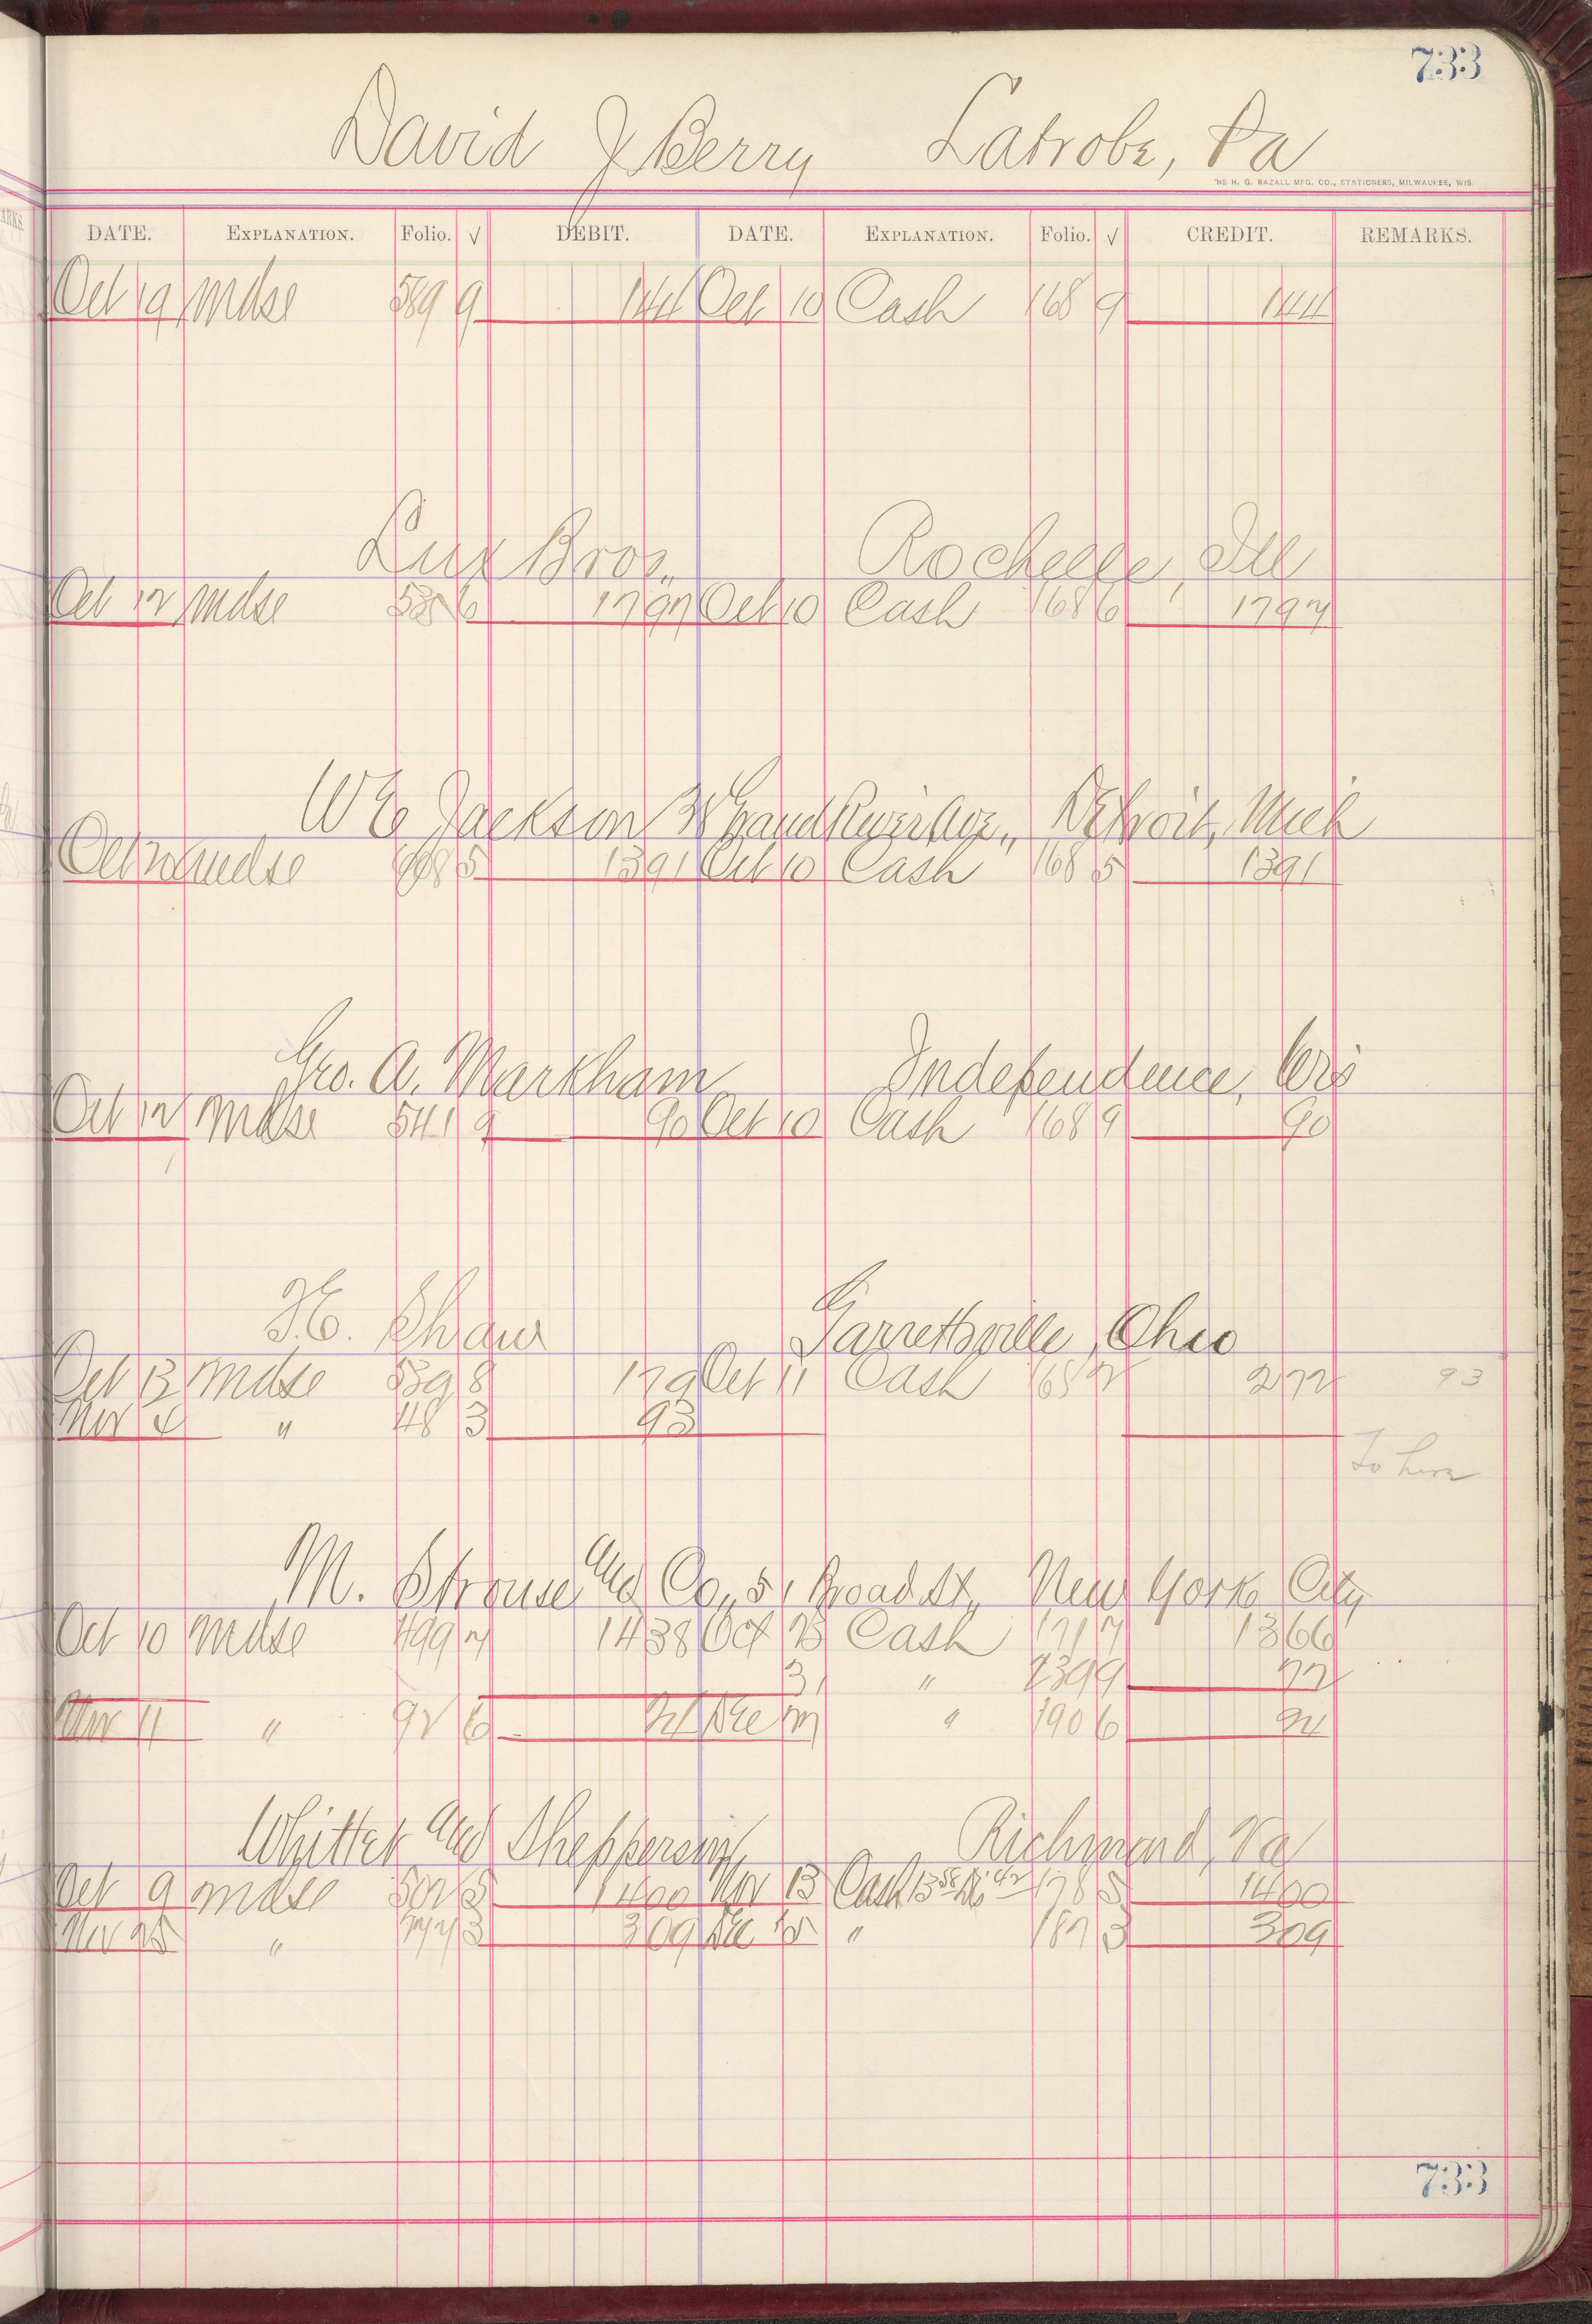 733
David J Berry Latrobe, Pa
THE H. G. RAZALL MFG. CO., STATIONERS, MILWAUKEE, WIS.
DATE. EXPLANATION. Folio. √ DEBIT. DATE. EXPLANATION. Folio. √ CREDIT. REMARKS.
Oct 19 Mdse 589 9 144 Oct 10 Cash 168 9 144
Lux Bros., Rochelle, Ill
Oct 12 Mdse 6 1797 Oct 10 Cash 168 6 1797
W E Jackson Grand River Ave., Detroit, Mich
Oct mdse 5 1391 Oct 10 Cash 168 5 1391
Geo. A. Markham Independence, Wis
Oct 12 Mdse 541 9 90 Oct 10 Cash 168 9 90
Shaw Garrettsville, Ohio
Oct 13 Mdse 539 8 179 Oct 11 Cash 168 2 272 93
Nov 4 " 48 3 93
To here
M. Strouse and Co., 51 Broad St., New York City
Oct 10 Mdse 499 7 1438 Oct Cash 171 7 1366
31 " 9 72
Nov 11 " 92 6 Dec " 190 6
Whittet and Shepperson, Richmond, Va
Oct 9 Mdse 502 5 1400 Nov 13 Cash 13 58 Dis 42 178 5 1400
Nov 25 " 3 309 Dec " 187 3 309
733